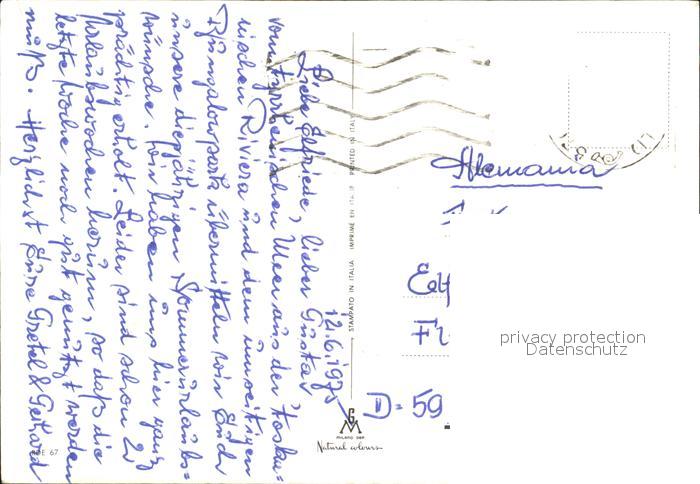 12.6.1975
Liebe Elfriede, lieber Gustav,
vom tyrrhenischen Meer aus der Toska-
nischen Riviera und dem hiesigen
Bungalowpark übermitteln wir Euch
unsere diesjährigen Sommerurlaubs-
wünsche. Wir haben uns hier ganz
prächtig erholt. Leider sind schon 2
Urlaubswochen herum, so daß die
letzte Woche noch gut genützt werden
muß. Herzlichst Eure Gretel & Gerhard
STAMPATO IN ITALIA IMPRIMÉ EN ITALIE PRINTED IN ITALY
Alemania
D-59
GM
MILANO
Natural colours
67
privacy protection
Datenschutz